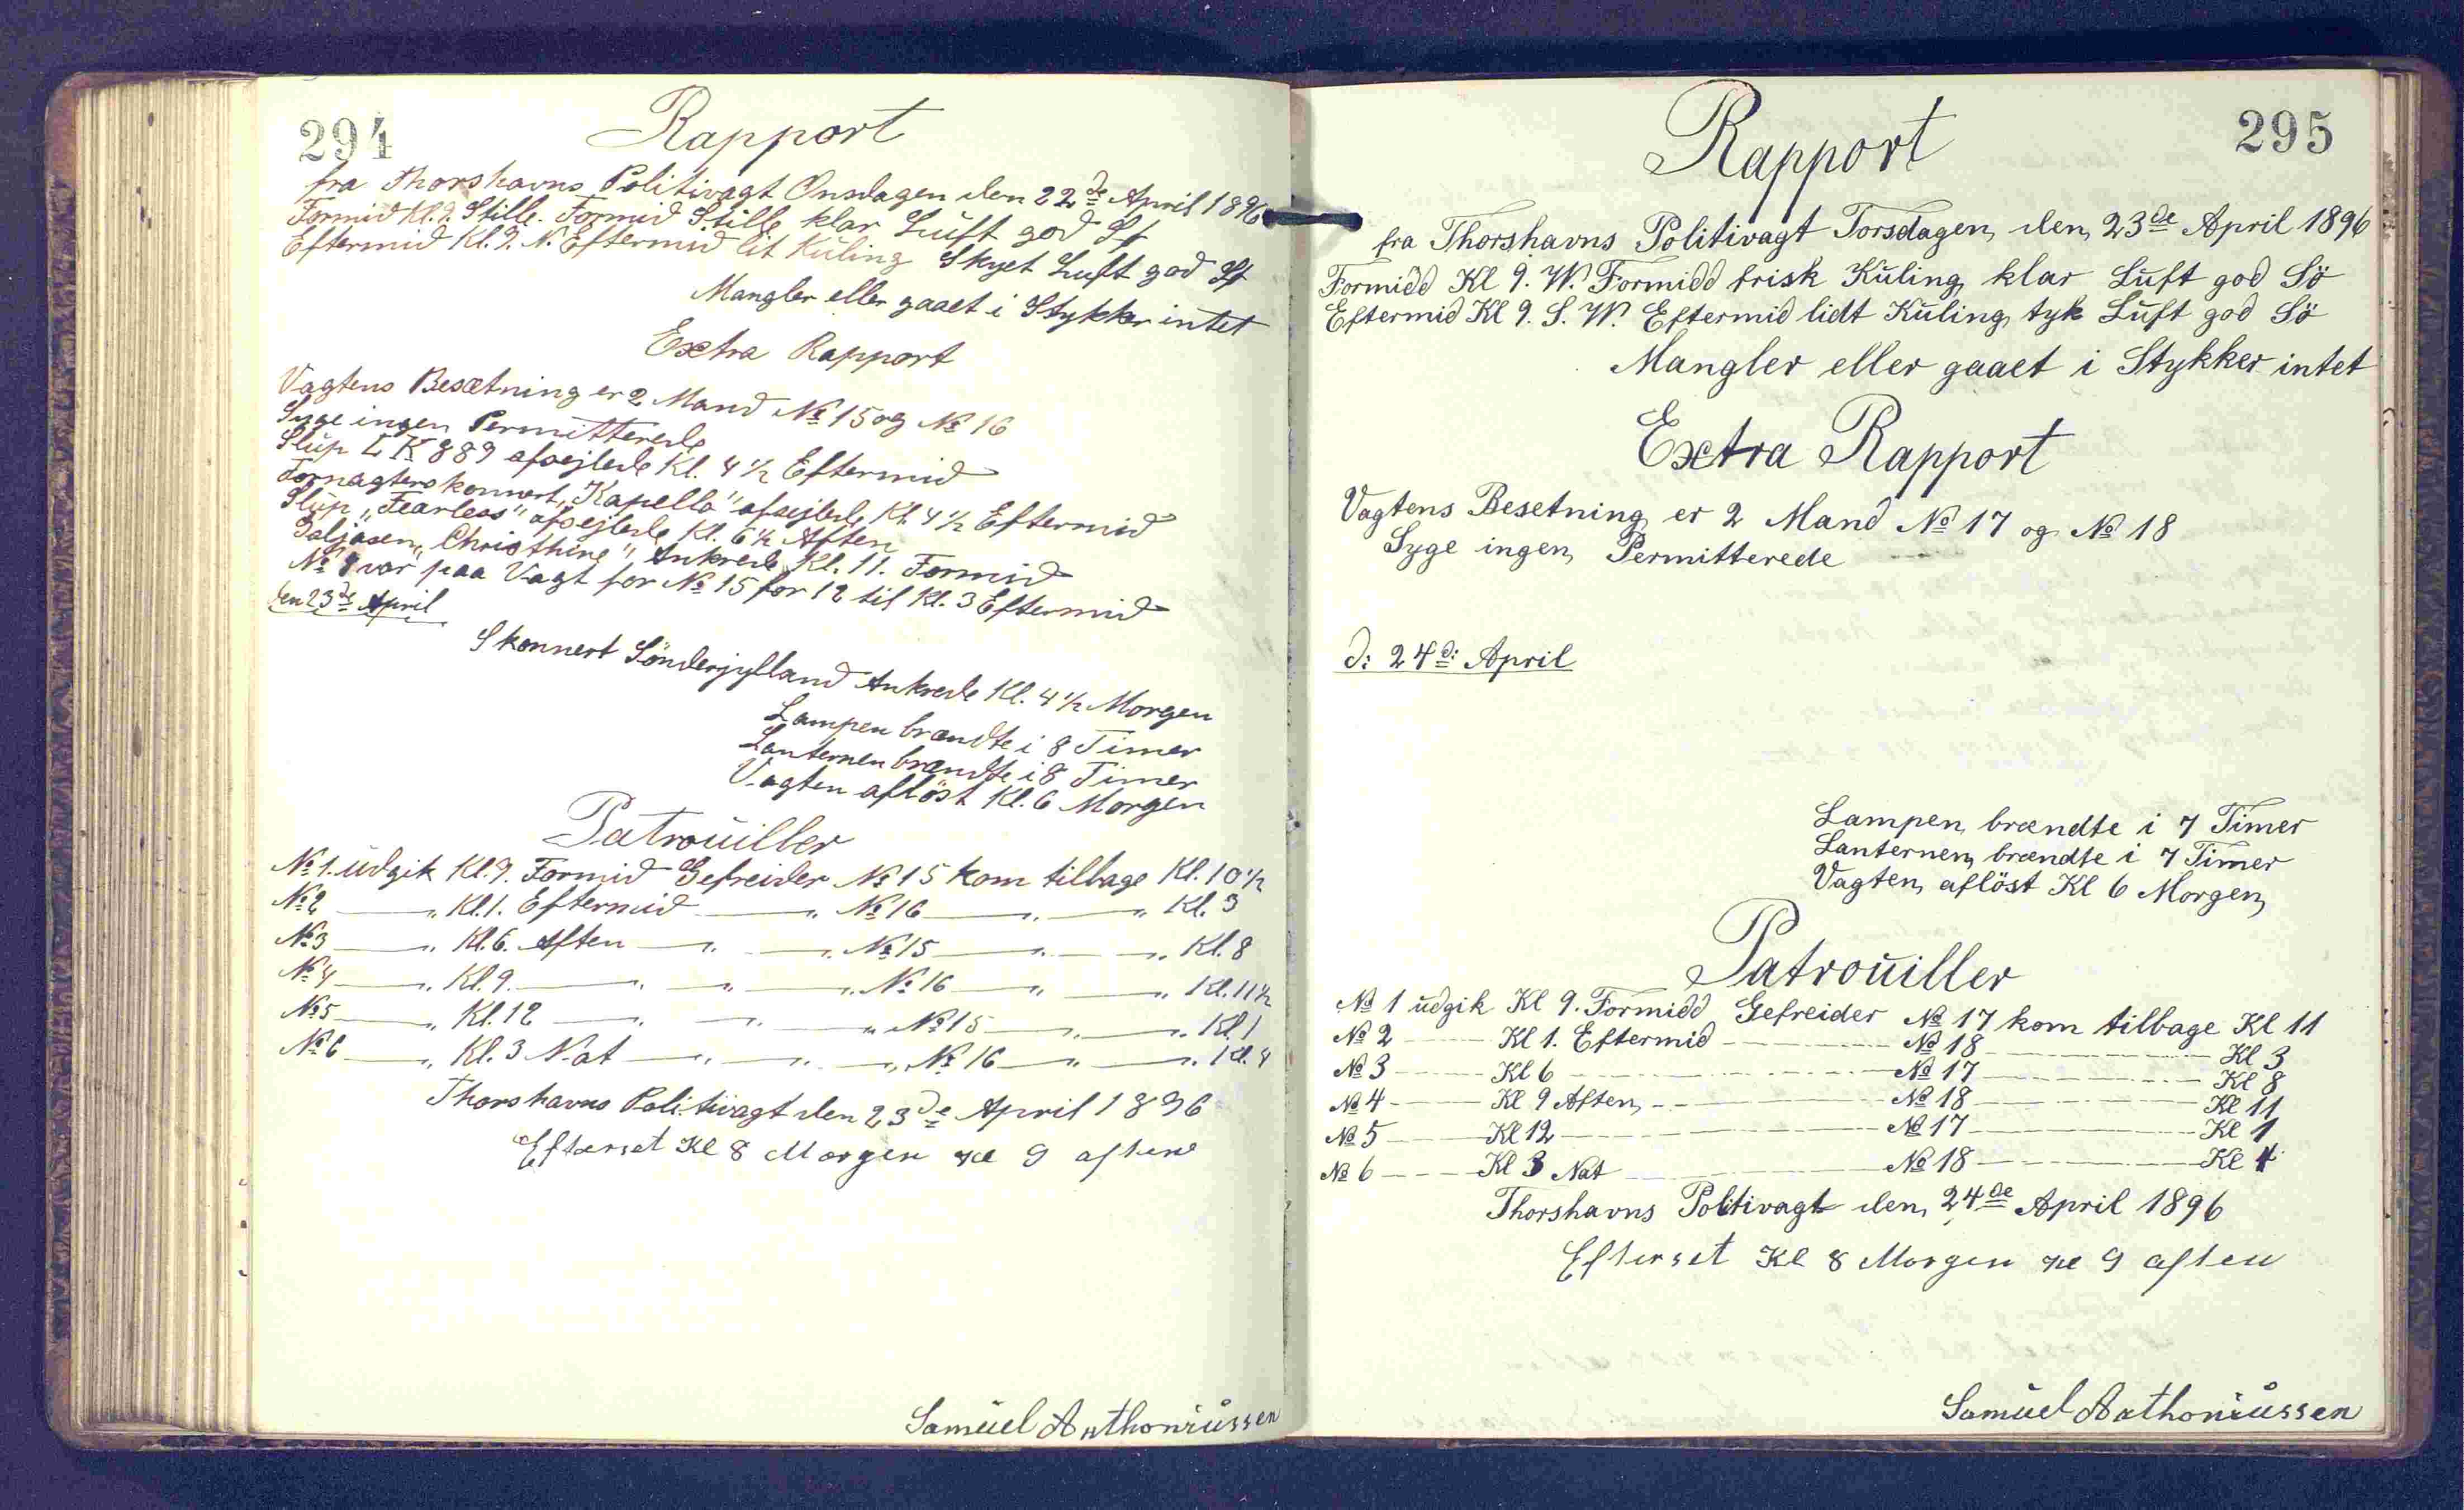 294
Rapport
fra Thorshavns Politivagt Onsdagen den 22de April 1896
Formid Kl. 9. Stille. Formid Stille klar Luft god Sö
Eftermid Kl. 9. N. Eftermid lit Kuling Skyet Luft god Sö
Mangler eller gaaet i Stykker intet
Extra Rapport
Vagtens Besætning er 2 Mand No 15 og No 16
Syge ingen Permitterede
Slup LK 889 afsejlede Kl. 4 1/2 Eftermid
skonnert "Kapella" afsejlede Kl. 4 1/2 Eftermid
Slup "Fearless" afsejlede Kl. 6 1/2 Aften
"Christhine" Ankrede Kl. 11. Formid
No var paa Vagt for No 15 for 12 til Kl. 3 Eftermid
den 23de April
Skonnert Sönderjylland Ankrede Kl. 4 1/2 Morgen
Lampen brændte i 8 Timer
Lanternen brændte i 8 Timer
Vagten aflöst Kl. 6 Morgen
Patrouiller
No 1. udgik Kl. 9. Formid Gefreider No 15 kom tilbage Kl. 10 1/2
No 2 — " Kl. 1. Eftermid — " No 16 — " — " Kl. 3
No 3 — " Kl. 6. Aften — " — " No 15 — " — " Kl. 8
No 4 — " Kl. 9. — " — " — " No 16 — " — " Kl. 11 1/2
No 5 — " Kl. 12 — " — " — " No 15 — " — " Kl. 1
No 6 — " Kl. 3 Nat — " — " — " No 16 — " — " Kl. 4
Thorshavns Politivagt den 23de April 1896
Efterset Kl 8 Morgen Kl 9 aften
Samuel Anthoniussen
295
Rapport
fra Thorshavns Politivagt Torsdagen, den, 23de April 1896
Formidd Kl 9. W. Formidd frisk Kuling, klar Luft god Sö
Eftermid Kl 9. S. W. Eftermid lidt Kuling, tyk Luft god Sö
Mangler eller gaaet i Stykker intet
Extra Rapport
Vagtens Besetning er 2 Mand No 17 og No 18
Syge ingen, Permitterede
d: 24d: April
Lampen, brændte i 7 Timer
Lanternen, brændte i 7 Timer
Vagten, aflöst Kl 6 Morgen,
Patrouiller
No 1 udgik Kl 9. Formidd Gefreider No 17 kom tilbage Kl 11
No 2 — Kl 1. Eftermid — No 18 — Kl 3
No 3 — Kl 6 — No 17 — Kl 8
No 4 — Kl 9 Aften, — No 18 — Kl 11
No 5 — Kl 12 — No 17 — Kl 1
No 6 — Kl 3 Nat — No 18 — Kl 4
Thorshavns Politivagt den, 24de April 1896
Efterset Kl 8 Morgen Kl 9 aften
Samuel Anthoniussen